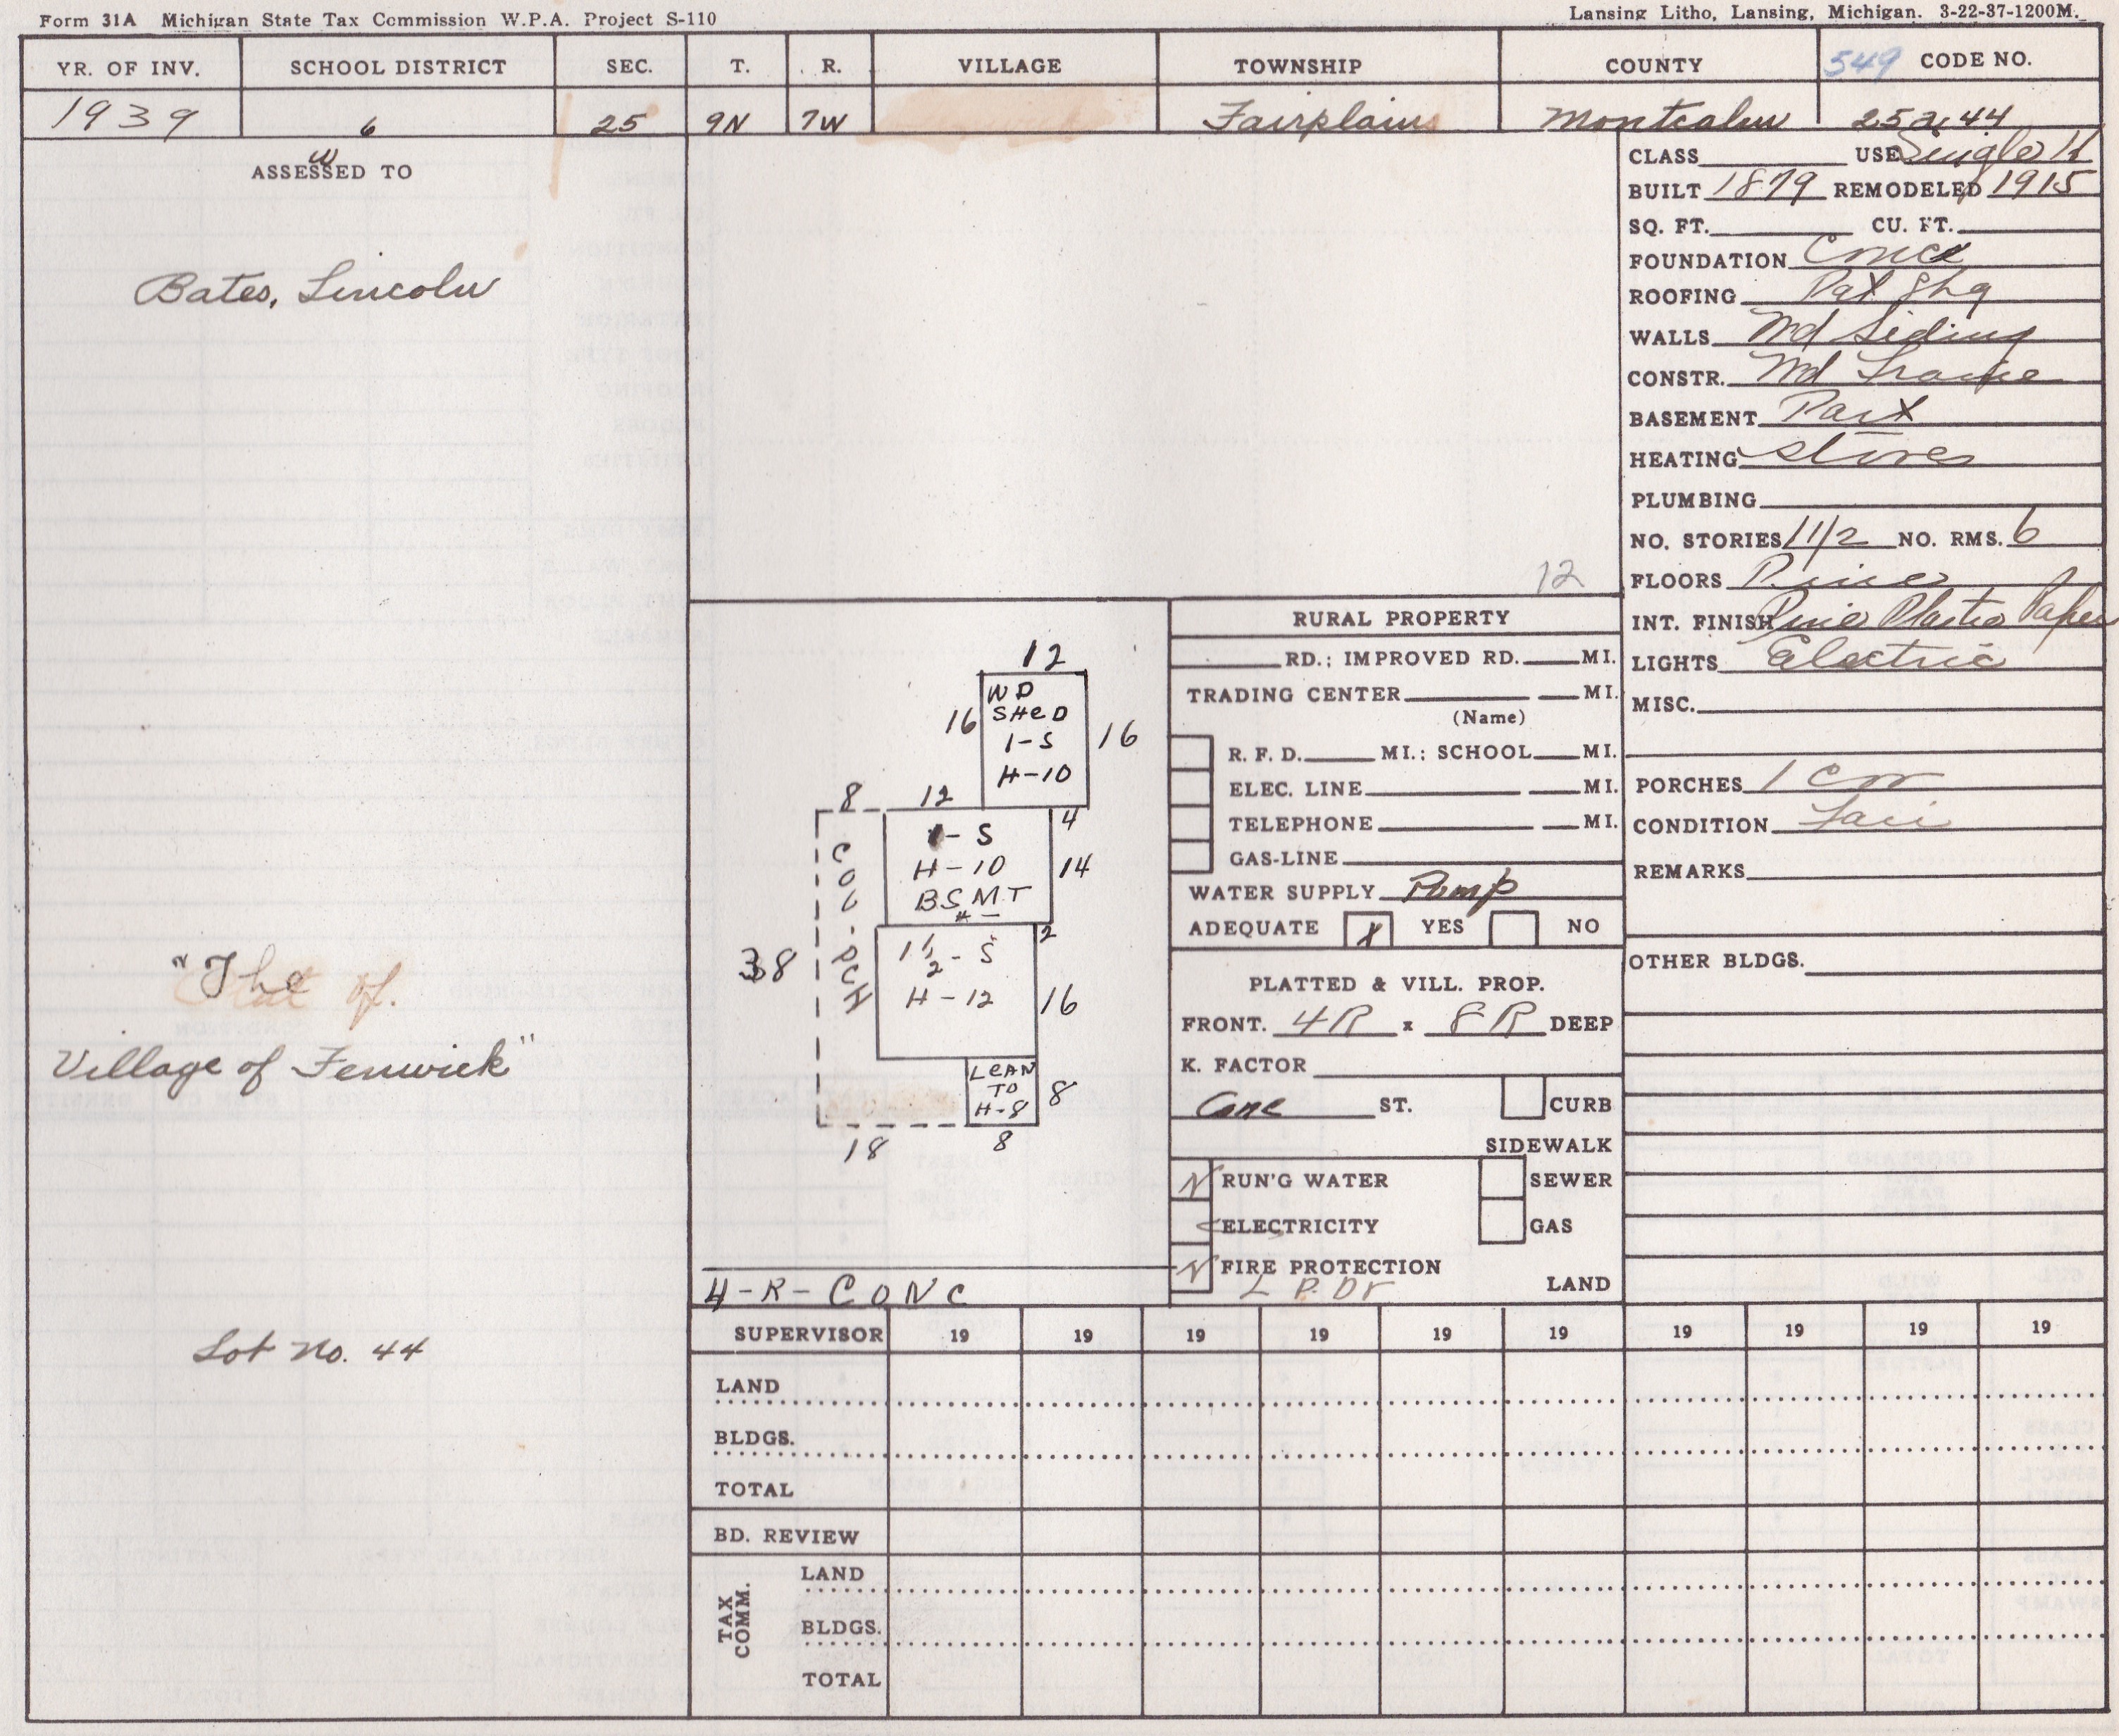 Form 31A Michigan State Tax Commission W.P.A. Project S-110
Lansing Litho, Lansing, Michigan. 3-22-37-1200M.
YR. OF INV. SCHOOL DISTRICT SEC. T. R. VILLAGE TOWNSHIP COUNTY 549 CODE NO.
1939 6 25 9N 7W Fairplains Montcalm 252,44
ASSESSED TO
W
Bates, Lincoln
"The
Plat of.
Village of Fenwick"
Lot No. 44
12
12
WD
SHED
1-S
H-10
16
16
8
12
4
1-S
H-10
BSMT
14
COL-PCH
38
2
1 1/2-S
H-12
16
LEAN
TO
H-8
8
18
8
4-R-CONC
RURAL PROPERTY
RD.; IMPROVED RD. MI.
TRADING CENTER MI.
(Name)
R. F. D. MI.; SCHOOL MI.
ELEC. LINE MI.
TELEPHONE MI.
GAS-LINE
WATER SUPPLY Pump
ADEQUATE X YES NO
PLATTED & VILL. PROP.
FRONT. 4R x 8R DEEP
K. FACTOR
ST. CURB
SIDEWALK
N RUN'G WATER SEWER
ELECTRICITY GAS
N FIRE PROTECTION
LAND
CLASS USE Single
BUILT 1879 REMODELED 1915
SQ. FT. CU. FT.
FOUNDATION Conc
ROOFING Pat Shg
WALLS Wd Siding
CONSTR. Wd Frame
BASEMENT Part
HEATING Stoves
PLUMBING
NO. STORIES 1 1/2 NO. RMS. 6
FLOORS Pine
INT. FINISH Pine Plaster Paper
LIGHTS Electric
MISC.
PORCHES 1 Cov
CONDITION Fair
REMARKS
OTHER BLDGS.
SUPERVISOR 19 19 19 19 19 19 19 19 19 19
LAND
BLDGS.
TOTAL
BD. REVIEW
TAX COMM.
LAND
BLDGS.
TOTAL